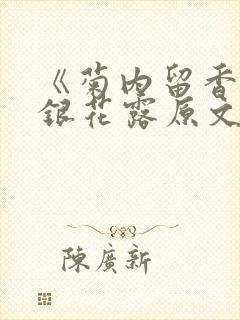 《菊内留香
銀花露原文
陳廣新